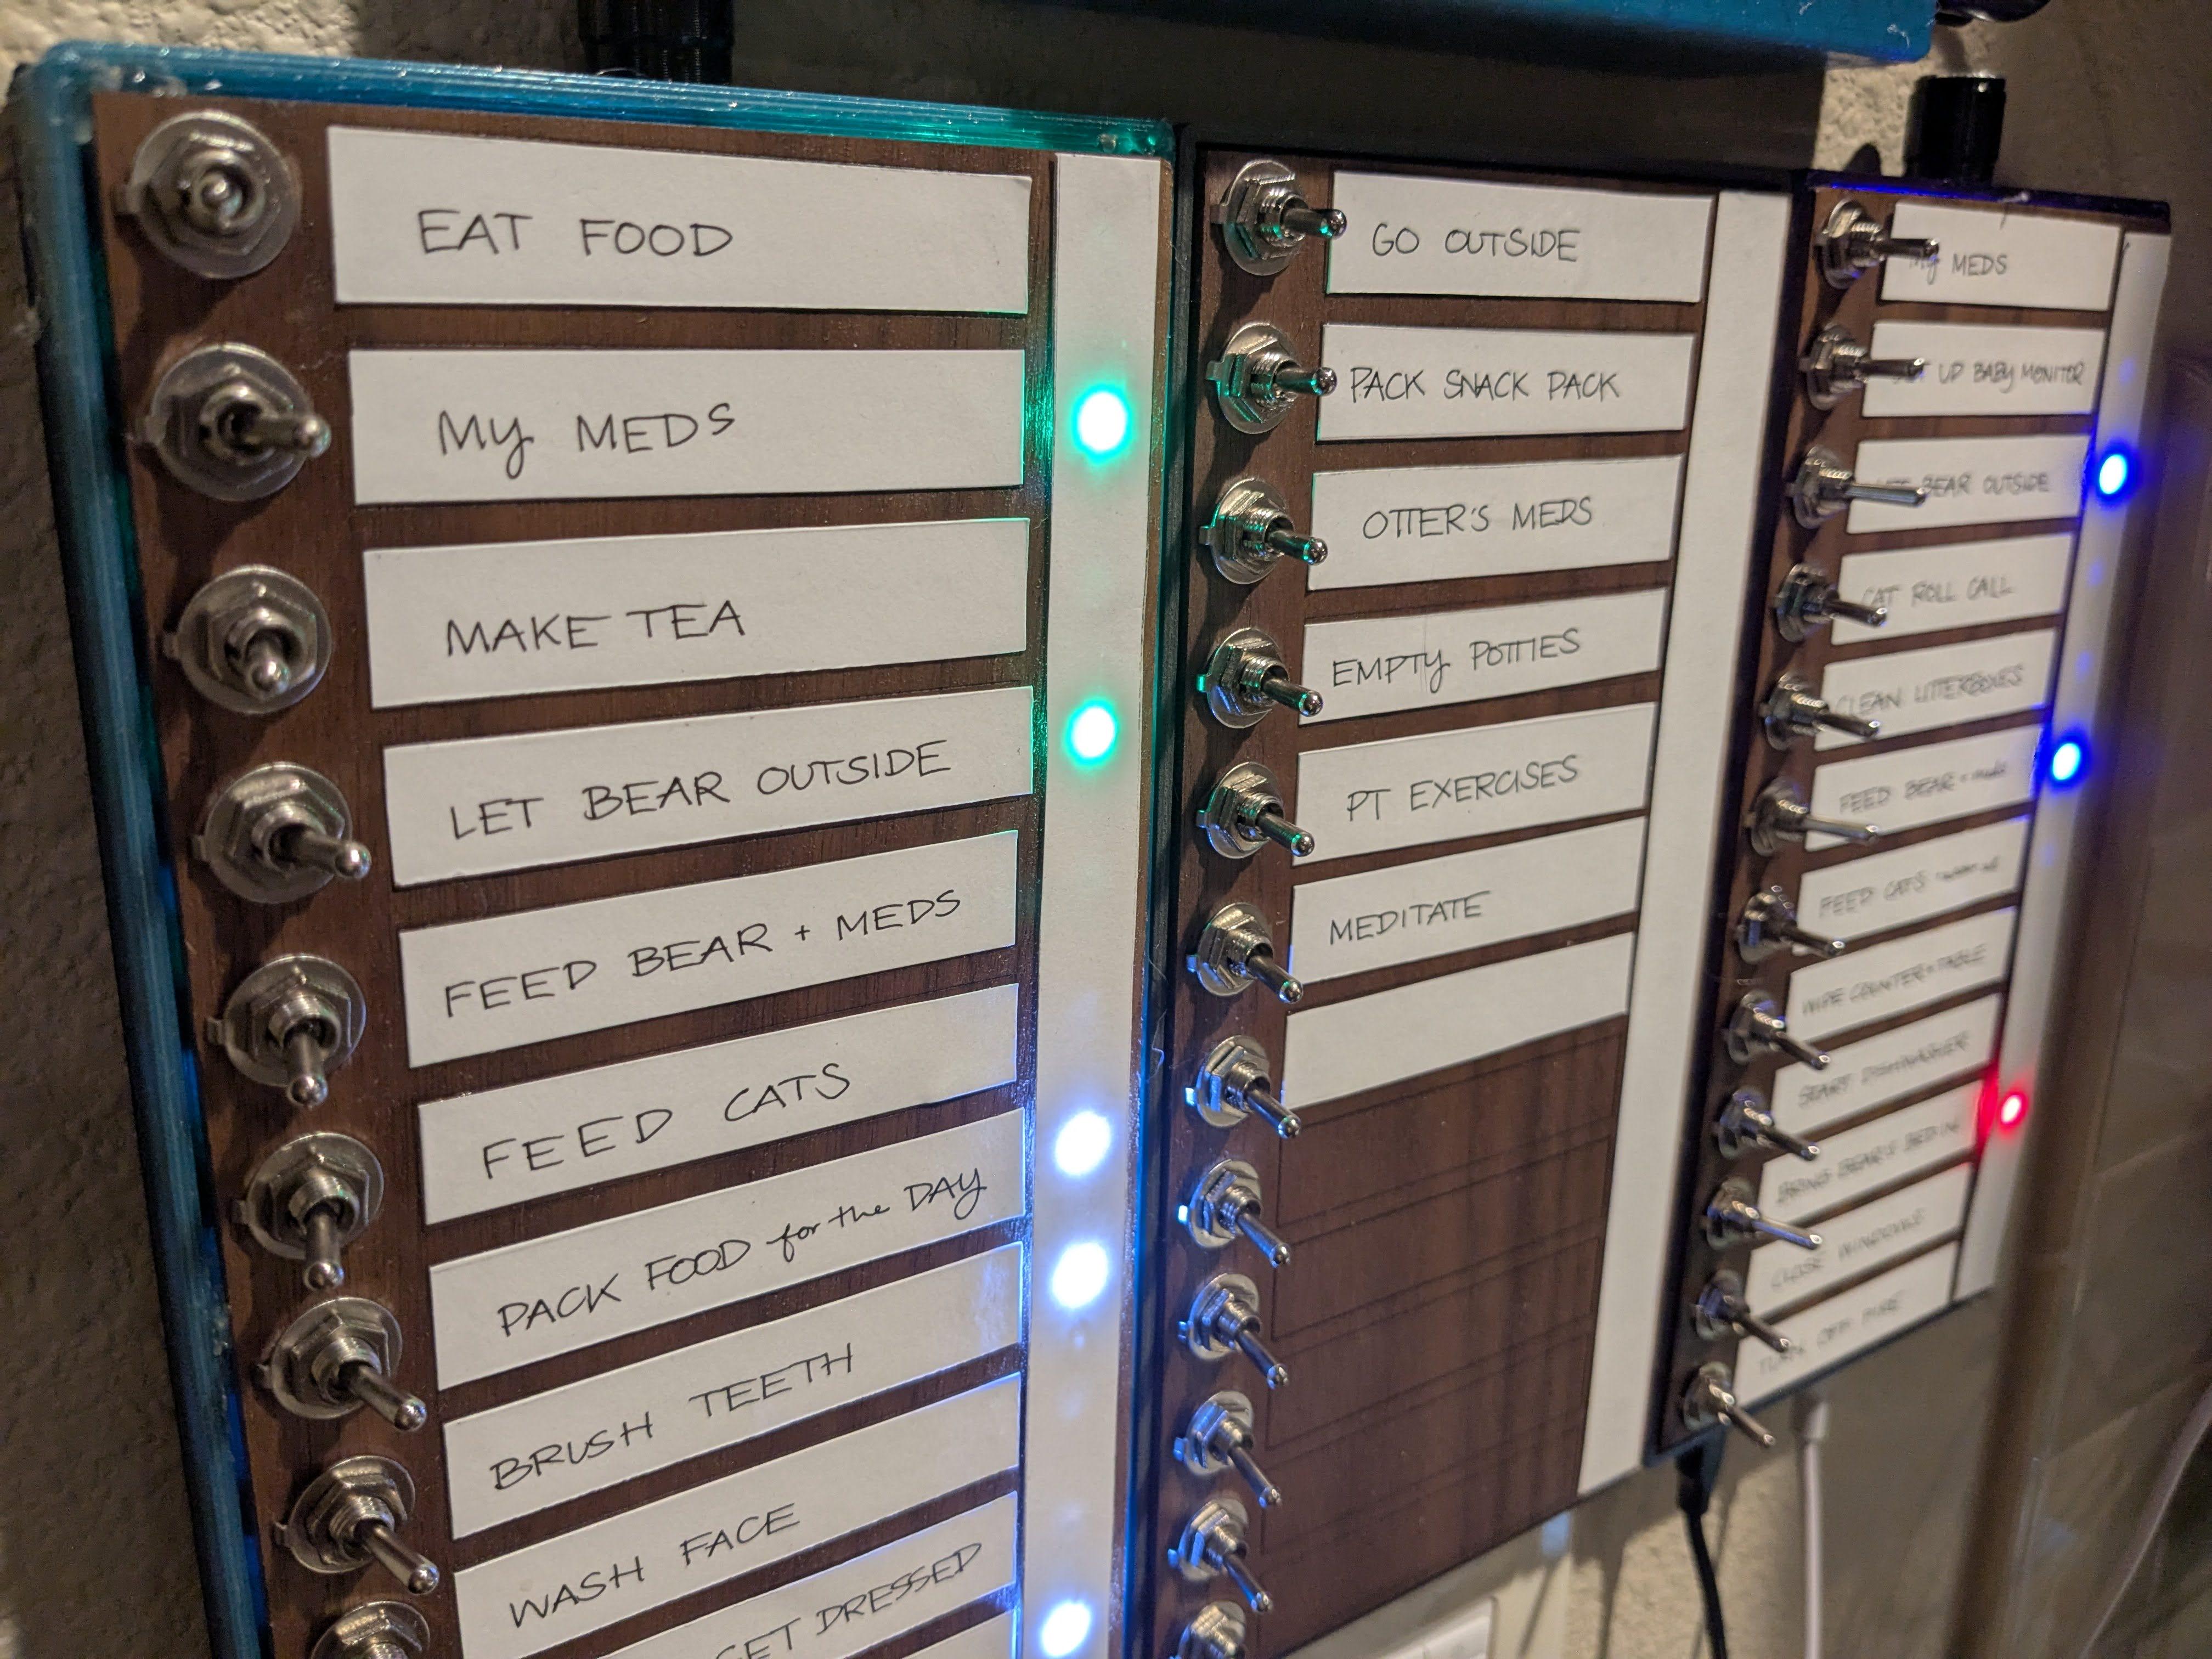 EAT FOOD
My MEDS
MAKE TEA
LET BEAR OUTSIDE
FEED BEAR + MEDS
FEED CATS
PACK FOOD for the DAY
BRUSH TEETH
WASH FACE
GET DRESSED
GO OUTSIDE
PACK SNACK PACK
OTTER'S MEDS
EMPTy POTTIES
PT EXERCISES
MEDITATE
My MEDS
UP BABY MONITOR
BEAR OUTSIDE
CAT ROLL CALL
CLEAN LITTERBOXES
FEED BEAR + meds
FEED CATS
WIPE COUNTER + TABLE
START DISHWASHER
BRING BEAR'S BED IN
CLOSE WINDOWS
TURN OFF